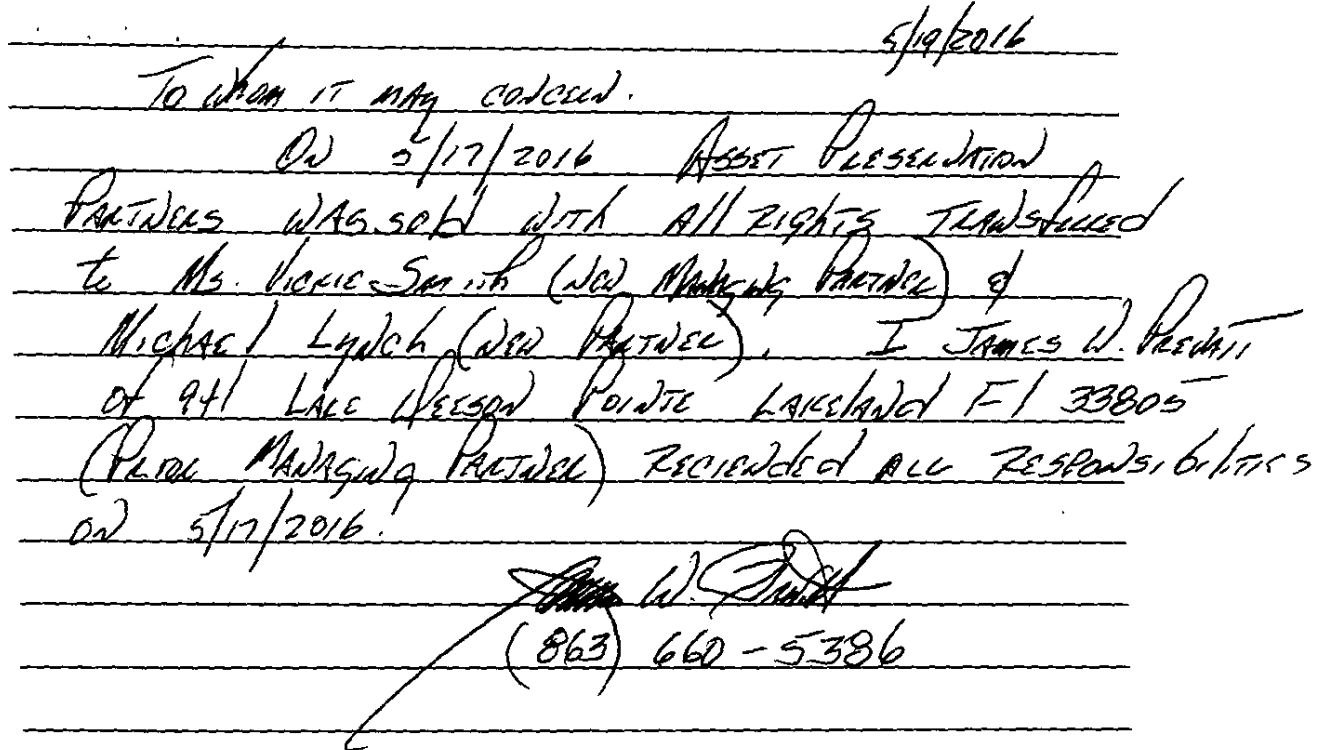 5/19/2016
To Whom it may concern.
On 5/17/2016 Asset Preservation
Partners was sold with all rights transferred
to Ms. Vickie Smith (New Managing Partner) &
Michael Lynch (New Partner). I James W. Prewitt
of 941 Lake Deeson Pointe Lakeland Fl 33805
(Prior Managing Partner) reciended all responsibilities
on 5/17/2016.
James W. Prewitt
(863) 660-5386